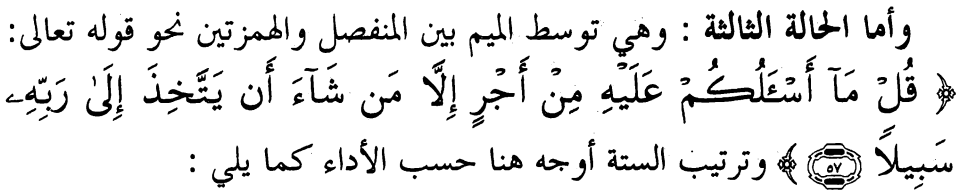 وأما الحالة الثالثة : وهي توسط الميم بين المنفصل والهمزتين نحو قوله تعالى:
﴿ قُلْ مَآ أَسْـَٔلُكُمْ عَلَيْهِ مِنْ أَجْرٍ إِلَّا مَن شَآءَ أَن يَتَّخِذَ إِلَىٰ رَبِّهِۦ
سَبِيلًا ۝٥٧ ﴾ وترتيب الستة أوجه هنا حسب الأداء كما يلي :